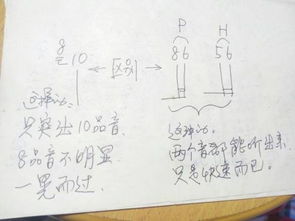 P H
8 10 ← 区别 → 86 56
这样的
只突出10品音
8品音不明显
一晃而过.
两个音都能听出来
只是快速而已.